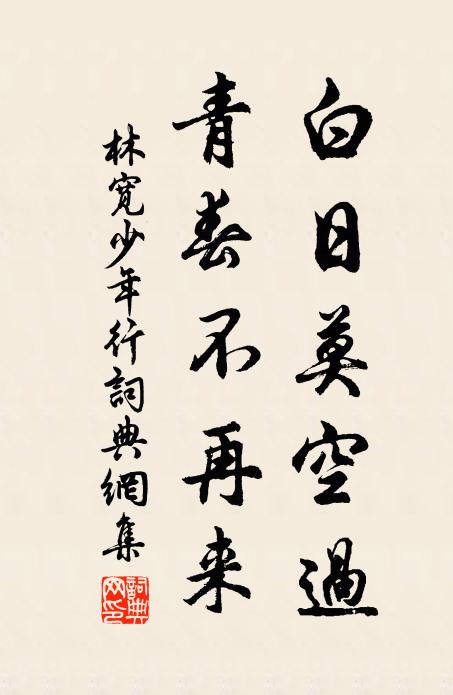 白日莫空過
青春不再来
林寬少年行詞典網集
詞典網印